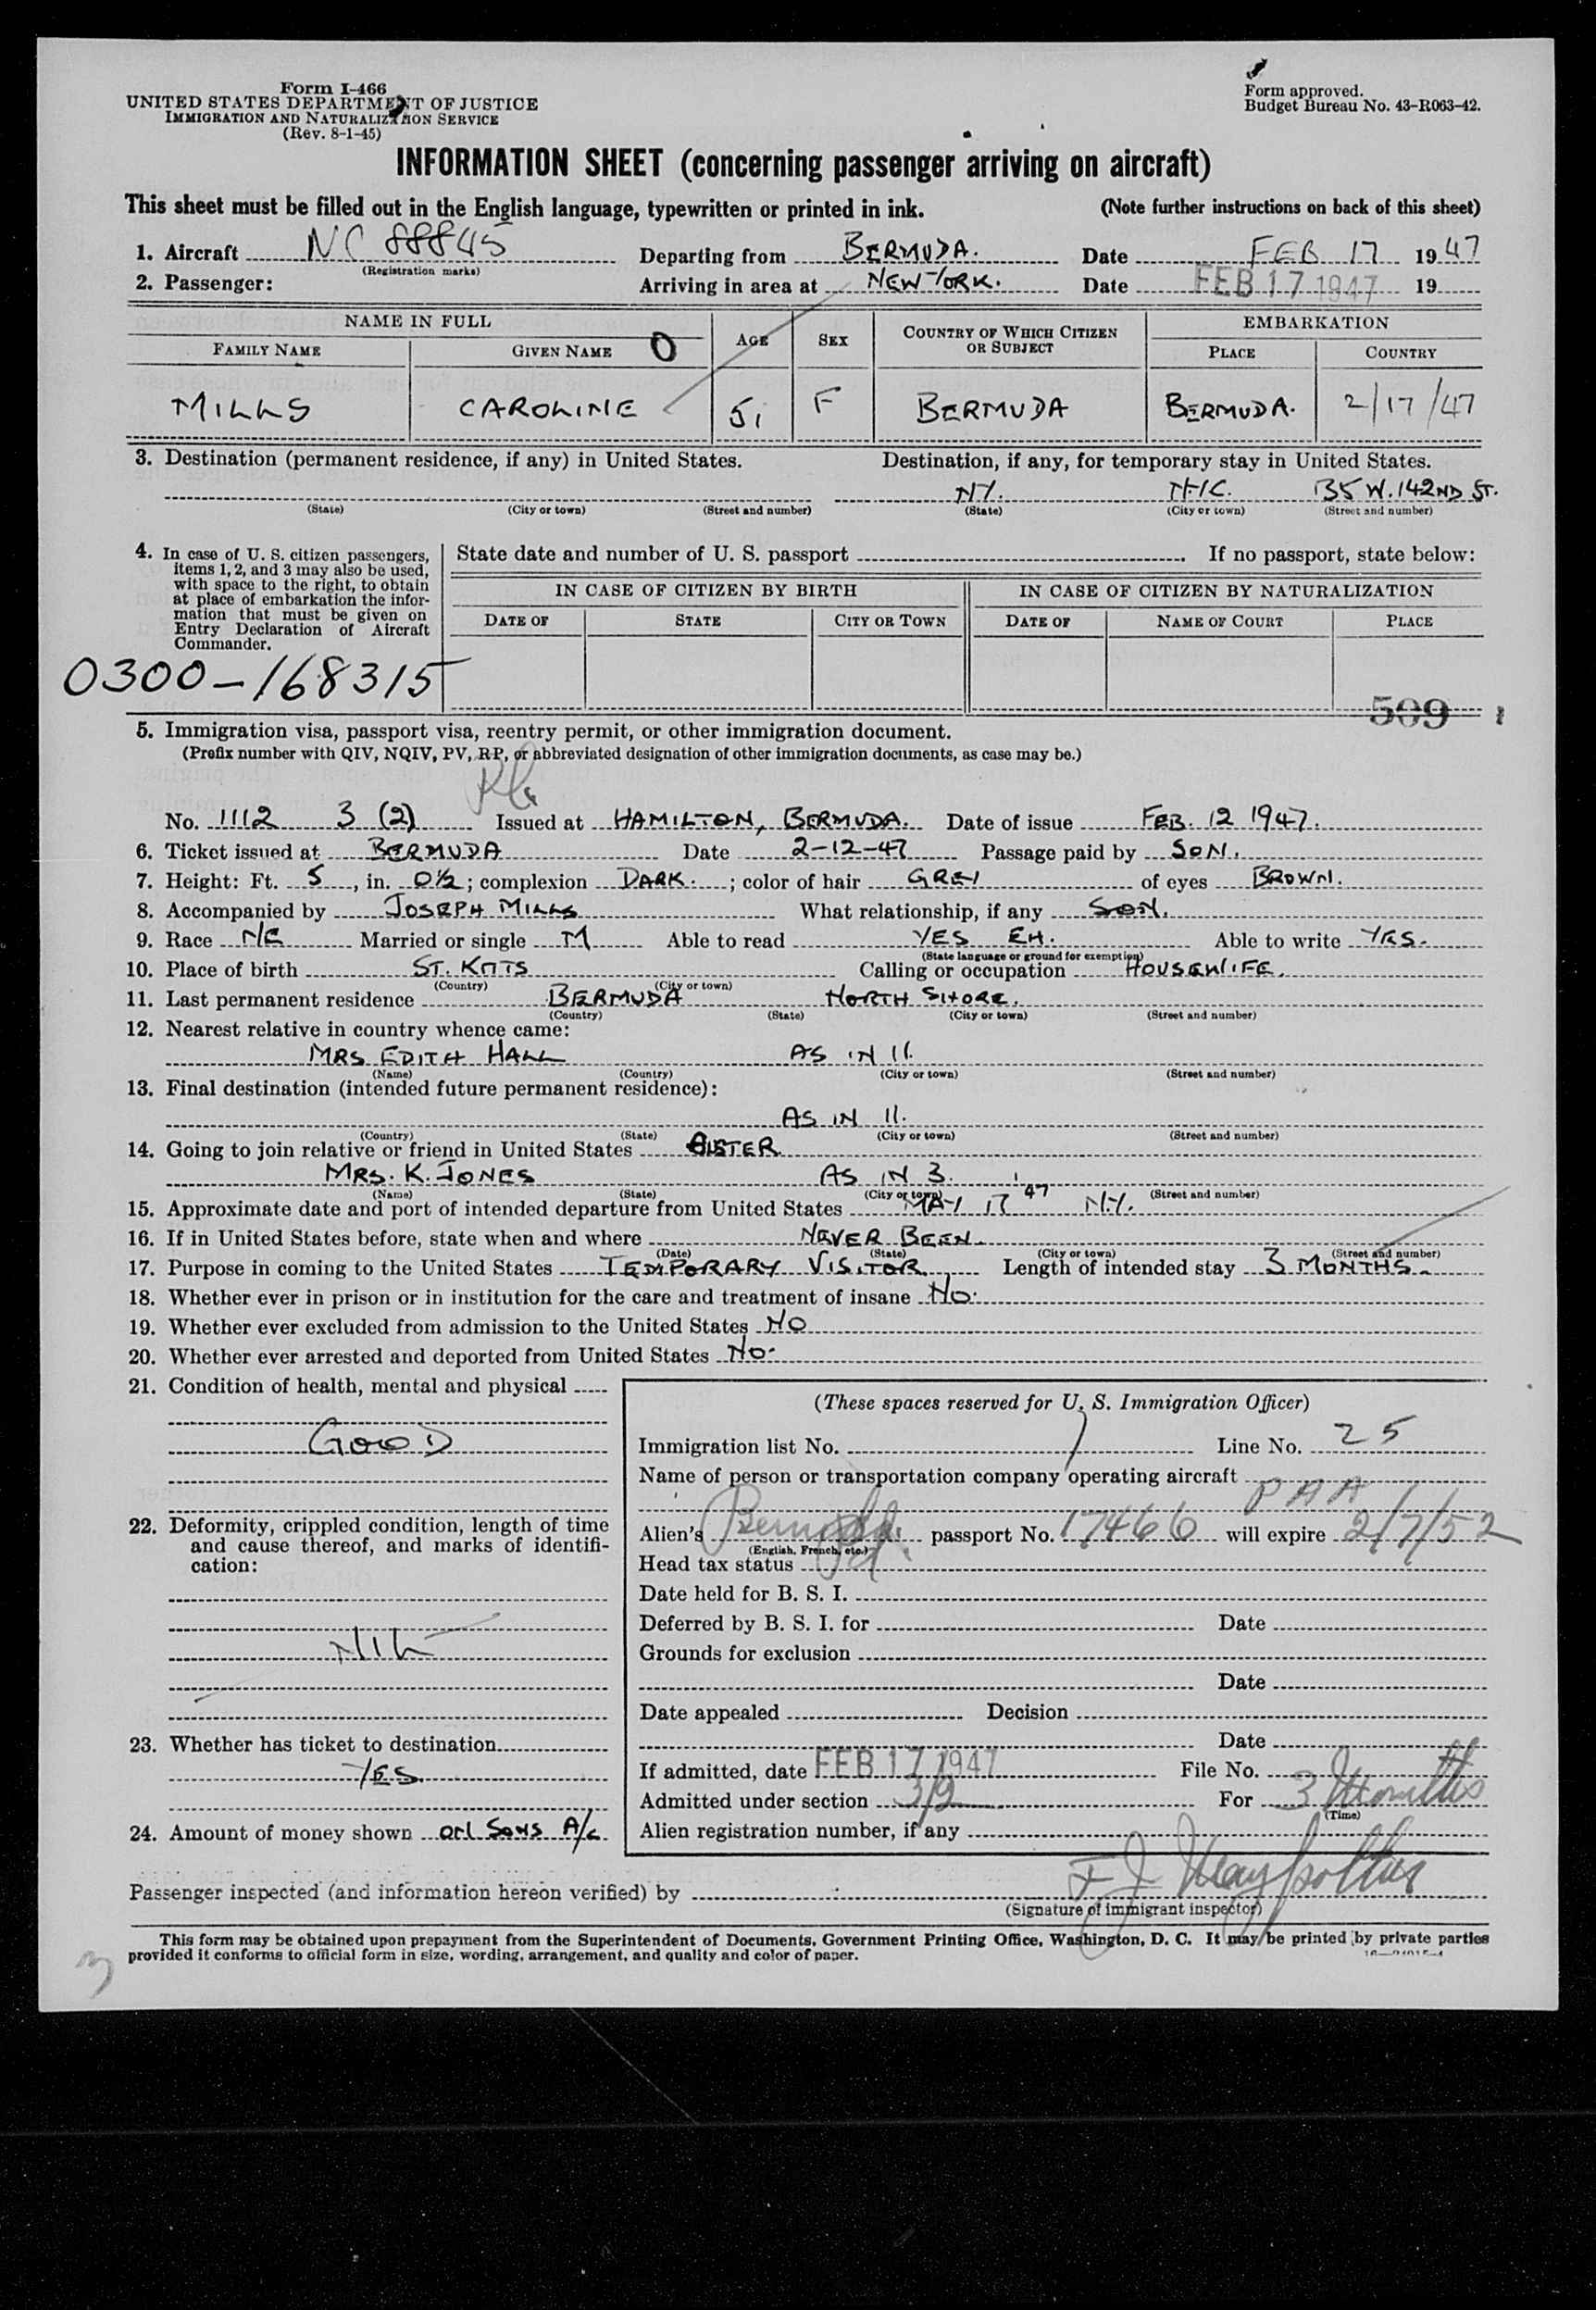 Form I-466
UNITED STATES DEPARTMENT OF JUSTICE
IMMIGRATION AND NATURALIZATION SERVICE
(Rev. 8-1-45)
Form approved.
Budget Bureau No. 43-R063-42.
INFORMATION SHEET (concerning passenger arriving on aircraft)
This sheet must be filled out in the English language, typewritten or printed in ink. (Note further instructions on back of this sheet)
1. Aircraft NC 88845 Departing from BERMUDA. Date FEB 17 1947
(Registration marks)
2. Passenger: Arriving in area at NEW YORK. Date FEB 17 1947 19
NAME IN FULL AGE SEX COUNTRY OF WHICH CITIZEN OR SUBJECT EMBARKATION
FAMILY NAME GIVEN NAME O PLACE COUNTRY
MILLS CAROLINE 51 F BERMUDA BERMUDA. 2/17/47
3. Destination (permanent residence, if any) in United States. Destination, if any, for temporary stay in United States.
NY. NYC. 135 W. 142ND ST.
(State) (City or town) (Street and number) (State) (City or town) (Street and number)
4. In case of U. S. citizen passengers, items 1, 2, and 3 may also be used, with space to the right, to obtain at place of embarkation the information that must be given on Entry Declaration of Aircraft Commander.
State date and number of U. S. passport . If no passport, state below:
IN CASE OF CITIZEN BY BIRTH IN CASE OF CITIZEN BY NATURALIZATION
DATE OF STATE CITY OR TOWN DATE OF NAME OF COURT PLACE
0300-168315
509
5. Immigration visa, passport visa, reentry permit, or other immigration document.
(Prefix number with QIV, NQIV, PV, RP, or abbreviated designation of other immigration documents, as case may be.)
No. 1112 3 (2) Issued at HAMILTON, BERMUDA. Date of issue FEB. 12 1947.
6. Ticket issued at BERMUDA Date 2-12-47 Passage paid by SON.
7. Height: Ft. 5, in. 0½; complexion DARK.; color of hair GREY of eyes BROWN.
8. Accompanied by JOSEPH MILLS What relationship, if any SON.
9. Race NE Married or single M Able to read YES EH. Able to write YES.
(State language or ground for exemption)
10. Place of birth ST. KITTS Calling or occupation HOUSEWIFE.
(Country) (City or town)
11. Last permanent residence BERMUDA NORTH SHORE.
(Country) (State) (City or town) (Street and number)
12. Nearest relative in country whence came:
MRS EDITH HALL AS IN 11.
(Name) (Country) (City or town) (Street and number)
13. Final destination (intended future permanent residence):
AS IN 11.
(Country) (State) (City or town) (Street and number)
14. Going to join relative or friend in United States SISTER
MRS. K. JONES AS IN 3.
(Name) (State) (City or town) (Street and number)
15. Approximate date and port of intended departure from United States MAY 17 '47 N.Y.
16. If in United States before, state when and where NEVER BEEN.
(Date) (State) (City or town) (Street and number)
17. Purpose in coming to the United States TEMPORARY VISITOR Length of intended stay 3 MONTHS.
18. Whether ever in prison or in institution for the care and treatment of insane NO.
19. Whether ever excluded from admission to the United States NO
20. Whether ever arrested and deported from United States NO.
21. Condition of health, mental and physical
GOOD
22. Deformity, crippled condition, length of time and cause thereof, and marks of identification:
NIL
23. Whether has ticket to destination
YES.
24. Amount of money shown ON SONS A/c
(These spaces reserved for U. S. Immigration Officer)
Immigration list No. 1 Line No. 25
Name of person or transportation company operating aircraft
PAA
Alien's passport No. 17466 will expire 2/7/52
(English, French, etc.)
Head tax status
Date held for B. S. I.
Deferred by B. S. I. for Date
Grounds for exclusion
Date
Date appealed Decision
Date
If admitted, date FEB 17 1947 File No.
Admitted under section 3/2 For 3 Months
(Time)
Alien registration number, if any
Passenger inspected (and information hereon verified) by
(Signature of immigrant inspector)
This form may be obtained upon prepayment from the Superintendent of Documents, Government Printing Office, Washington, D. C. It may be printed by private parties
provided it conforms to official form in size, wording, arrangement, and quality and color of paper.
3